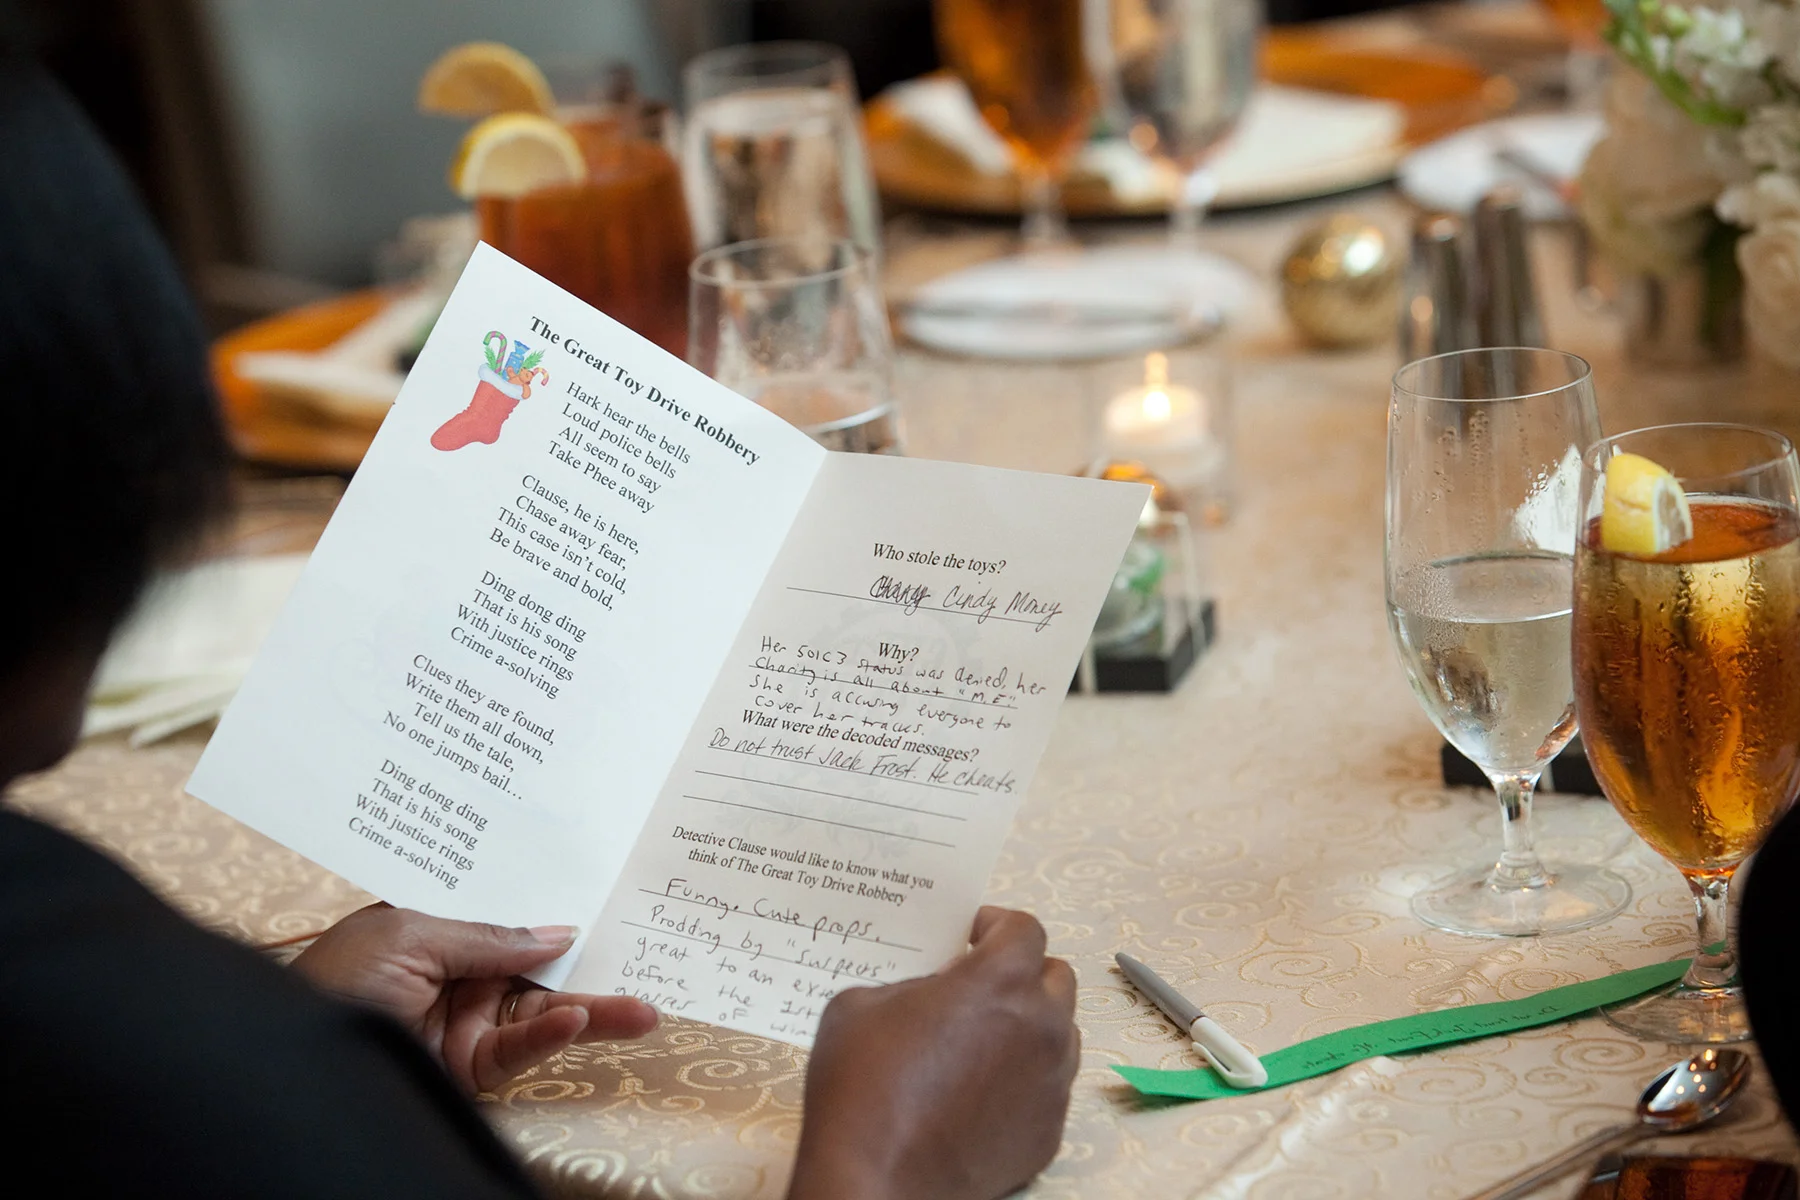 The Great Toy Drive Robbery
Hark hear the bells
Loud police bells
All seem to say
Take Phee away
Clause, he is here,
Chase away fear,
This case isn't cold,
Be brave and bold,
Ding dong ding
That is his song
With justice rings
Crime a-solving
Clues they are found,
Write them all down,
Tell us the tale,
No one jumps bail…
Ding dong ding
That is his song
With justice rings
Crime a-solving
Who stole the toys?
Cindy Money
Why?
Her 501C3 status was denied, her
Charity is all about "M.E."
She is accusing everyone to
cover her tracks.
What were the decoded messages?
Do not trust Jack Frost. He cheats.
Detective Clause would like to know what you
think of The Great Toy Drive Robbery
Funny. Cute props.
Prodding by "suspects"
great to an
before the 1st
glasses of